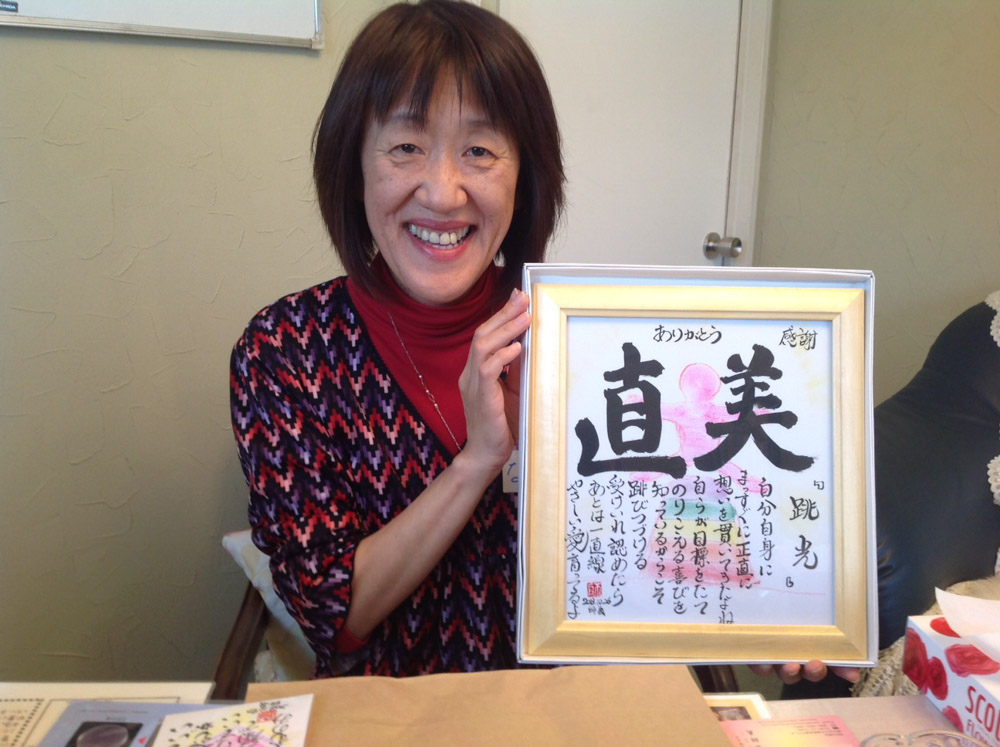 感謝
ありがとう
直美
『跳光』
自分自身に
まっすぐに正直に
想いを貫いてきたよね
自らが目標をたて
のりこえる喜びを
知っているからこそ
跳びつづける
受けいれ認めたら
あとは一直線
やさしい愛育ってるよ
な
SCO